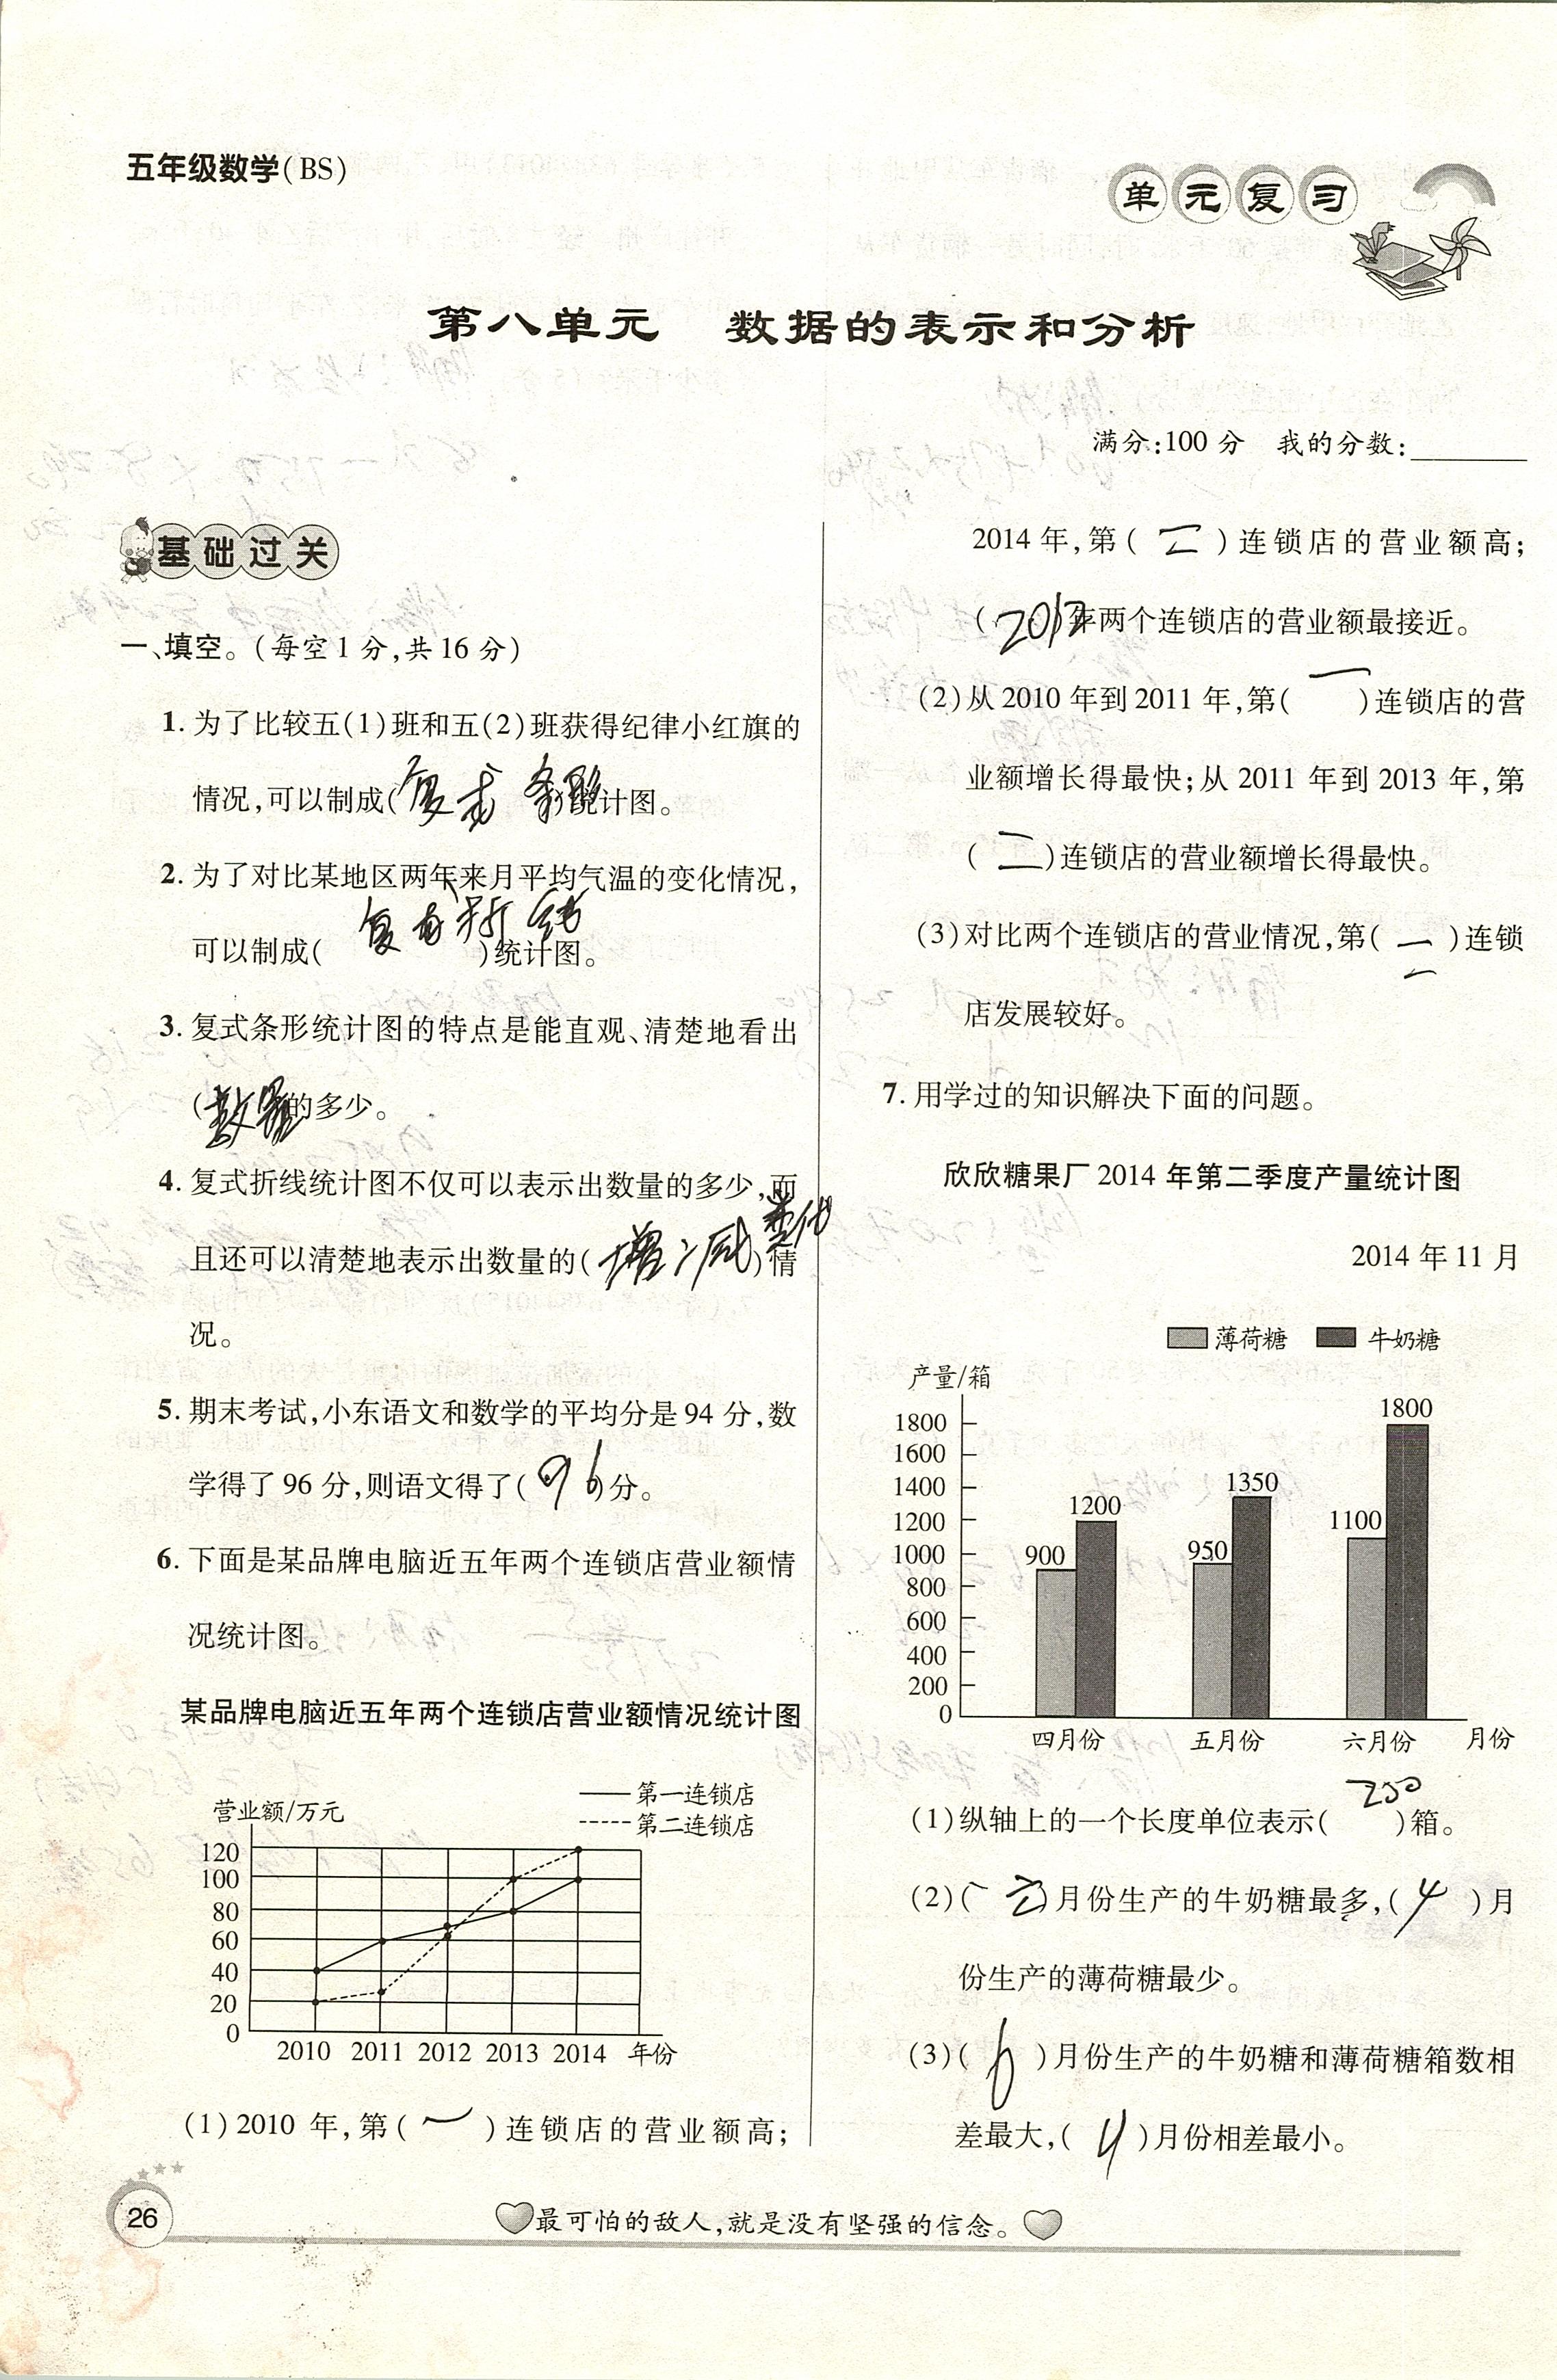 五年级数学(BS)
单元复习
第八单元 数据的表示和分析
满分:100分 我的分数:
基础过关
一、填空。(每空1分,共16分)
1. 为了比较五(1)班和五(2)班获得纪律小红旗的
情况,可以制成(复式条形)统计图。
2. 为了对比某地区两年来月平均气温的变化情况,
可以制成(复式折线)统计图。
3. 复式条形统计图的特点是能直观、清楚地看出
(数量)的多少。
4. 复式折线统计图不仅可以表示出数量的多少,而
且还可以清楚地表示出数量的(增减变化)情
况。
5. 期末考试,小东语文和数学的平均分是94分,数
学得了96分,则语文得了(96)分。
6. 下面是某品牌电脑近五年两个连锁店营业额情
况统计图。
某品牌电脑近五年两个连锁店营业额情况统计图
第一连锁店
第二连锁店
营业额/万元
120
100
80
60
40
20
0
2010 2011 2012 2013 2014 年份
(1)2010年,第(一)连锁店的营业额高;
2014年,第(二)连锁店的营业额高;
(2012)年两个连锁店的营业额最接近。
(2)从2010年到2011年,第(一)连锁店的营
业额增长得最快;从2011年到2013年,第
(二)连锁店的营业额增长得最快。
(3)对比两个连锁店的营业情况,第(二)连锁
店发展较好。
7. 用学过的知识解决下面的问题。
欣欣糖果厂2014年第二季度产量统计图
2014年11月
薄荷糖 牛奶糖
产量/箱
1800
1600
1400
1200
1000
800
600
400
200
0
900 1200 950 1350 1100 1800
四月份 五月份 六月份 月份
(1)纵轴上的一个长度单位表示(200)箱。
(2)(六)月份生产的牛奶糖最多,(4)月
份生产的薄荷糖最少。
(3)(6)月份生产的牛奶糖和薄荷糖箱数相
差最大,(4)月份相差最小。
26
最可怕的敌人,就是没有坚强的信念。